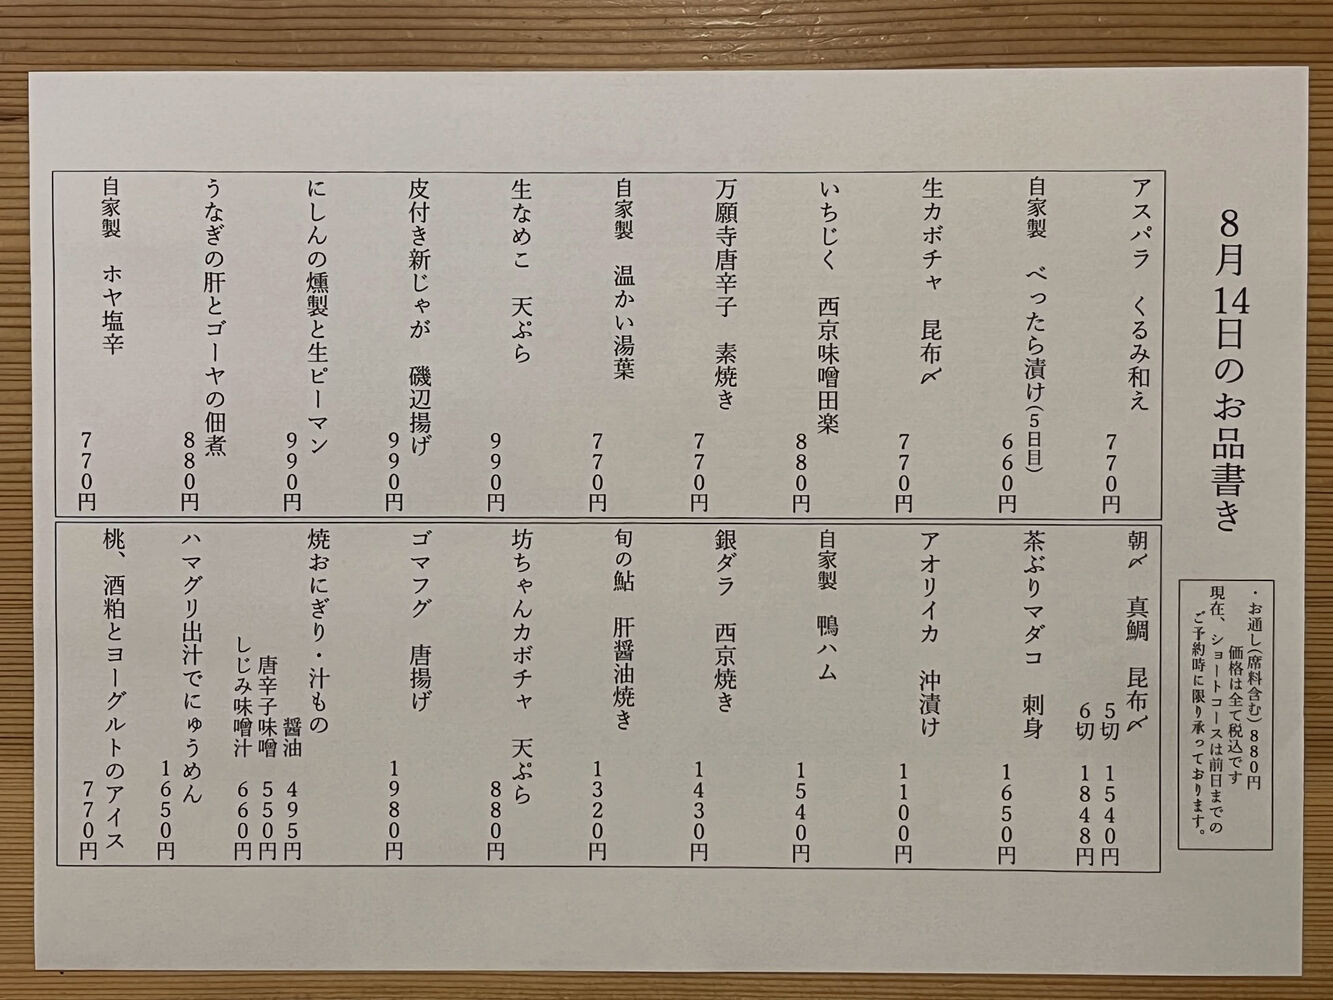 8月14日のお品書き
・お通し(席料含む)880円
価格は全て税込です
現在、ショートコースは前日までの
ご予約時に限り承っております。
アスパラ　くるみ和え
770円
自家製　べったら漬け(5日目)
660円
生カボチャ　昆布〆
770円
いちじく　西京味噌田楽
880円
万願寺唐辛子　素焼き
770円
自家製　温かい湯葉
770円
生なめこ　天ぷら
990円
皮付き新じゃが　磯辺揚げ
990円
にしんの燻製と生ピーマン
990円
うなぎの肝とゴーヤの佃煮
880円
自家製　ホヤ塩辛
770円
朝〆　真鯛　昆布〆
5切　1540円
6切　1848円
茶ぶりマダコ　刺身
1650円
アオリイカ　沖漬け
1100円
自家製　鴨ハム
1540円
銀ダラ　西京焼き
1430円
旬の鮎　肝醤油焼き
1320円
坊ちゃんカボチャ　天ぷら
880円
ゴマフグ　唐揚げ
1980円
焼おにぎり・汁もの
醤油　495円
唐辛子味噌　550円
しじみ味噌汁　660円
ハマグリ出汁でにゅうめん
1650円
桃、酒粕とヨーグルトのアイス
770円